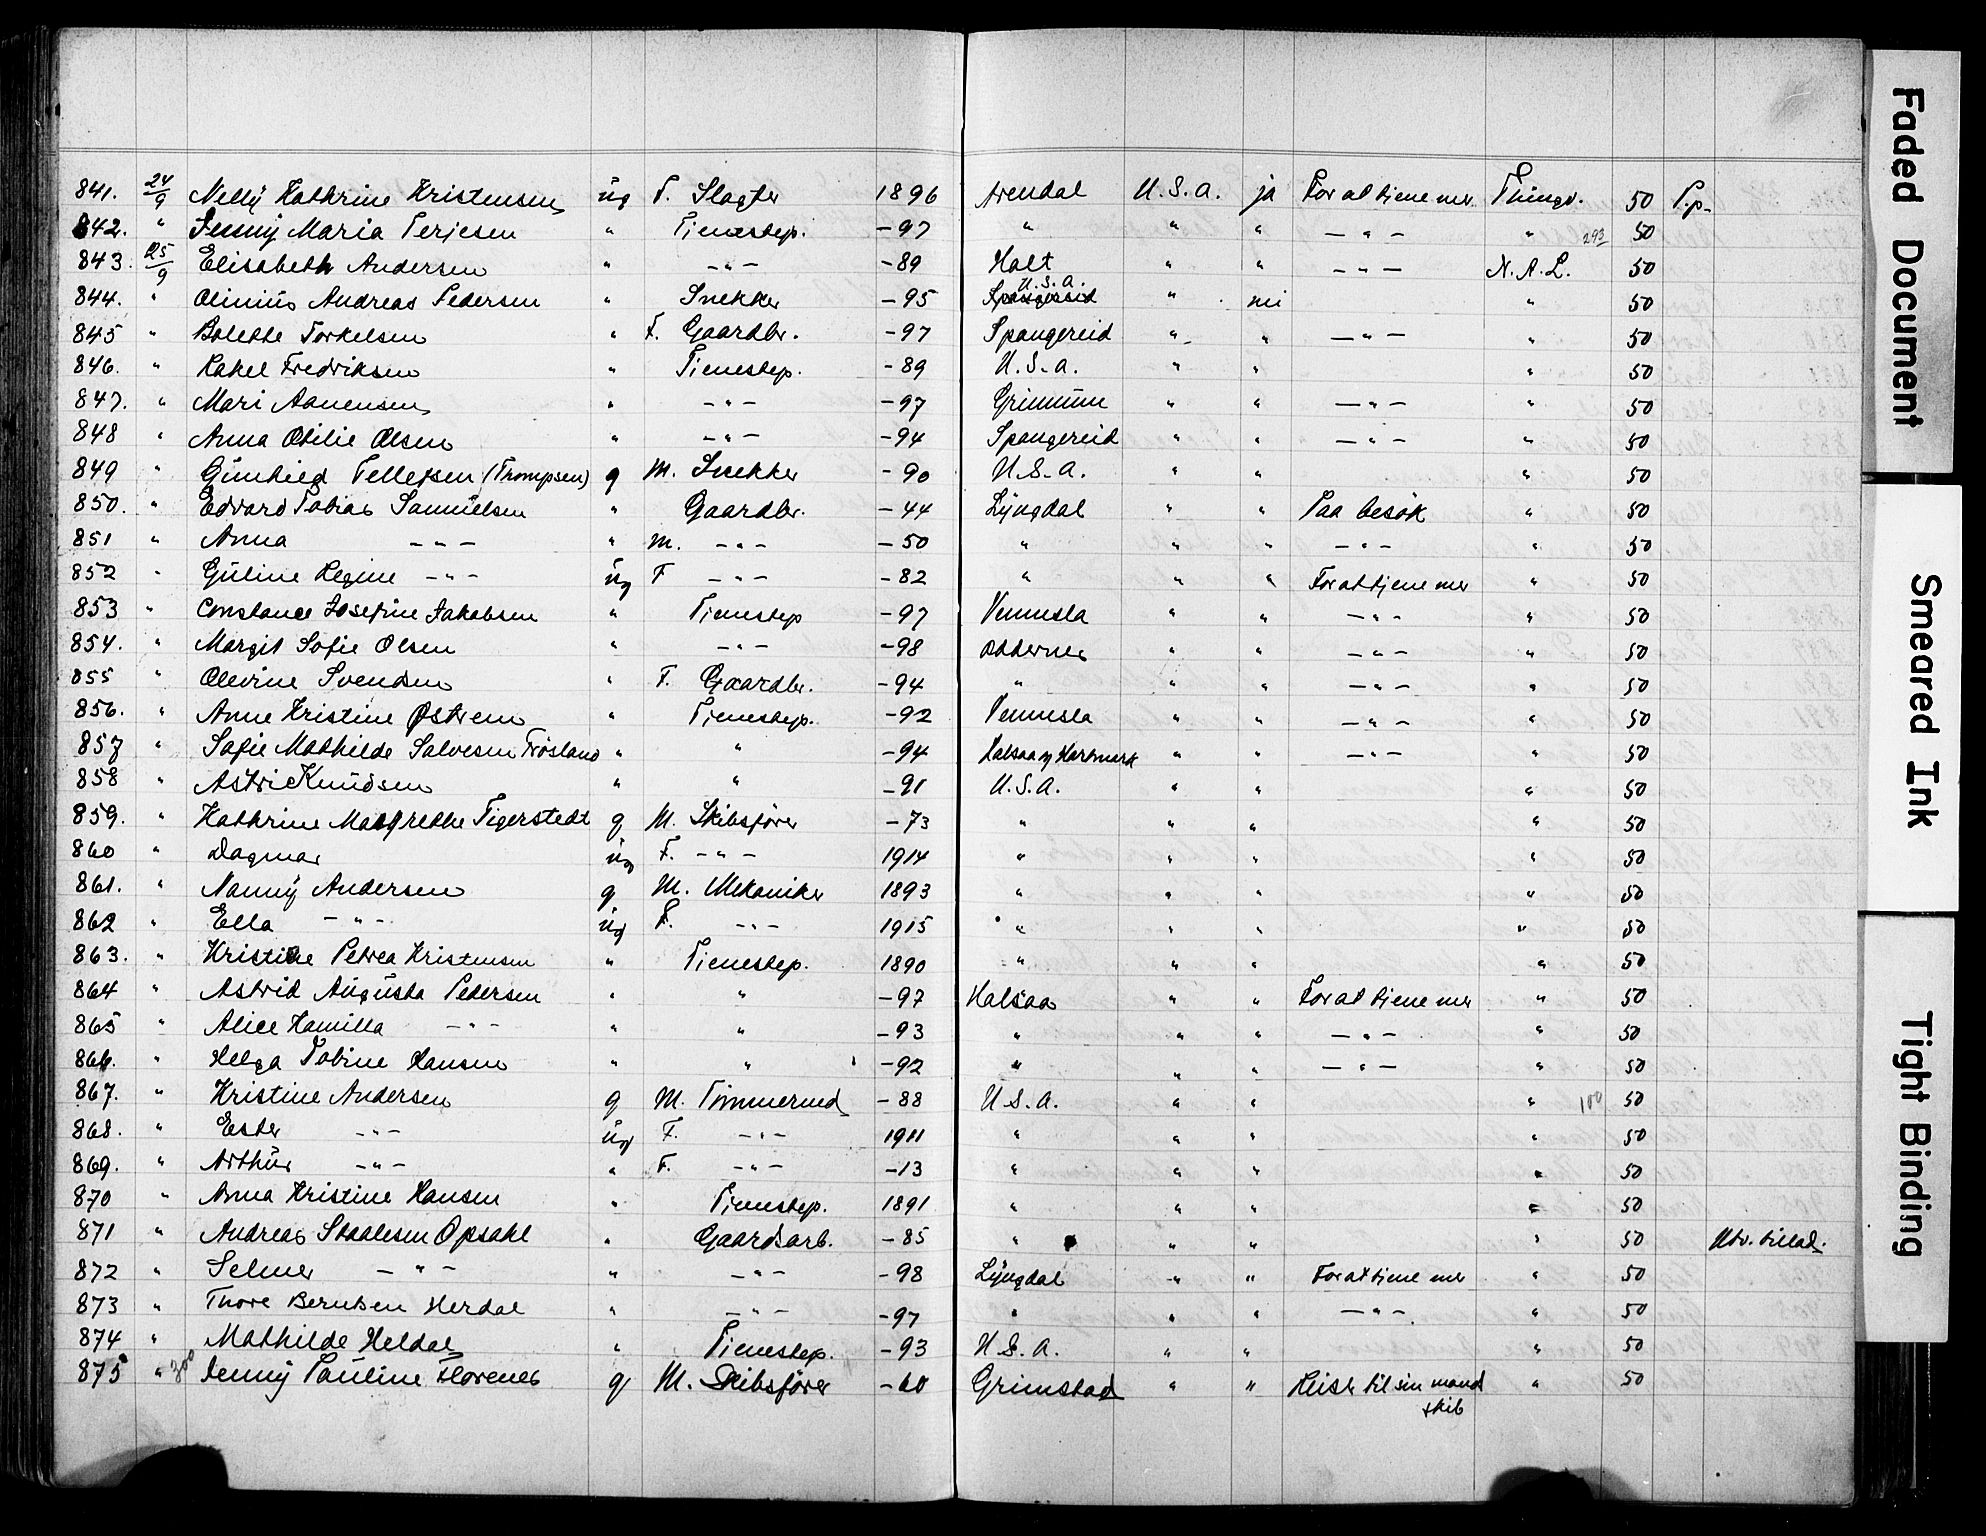 841. 24/9 Nelly Kathrine Kristensen ug F. Slagter 1896 Arendal U.S.A. ja For at tjene mer Thingv. 50 P.p.
842. " Jenny Maria Terjesen " Tjenestep. -97 " " " - " - " 293 50
843. 25/9 Elisabeth Andersen " - " - -89 Holt " " - " - N.A.L. 50
844. " Olinius Andreas Pedersen " Snekker -95 U.S.A. " nei " 50
845 " Bolette Torkelsen " F. Gaardbr. -97 Spangereid " " - " - " 50
846. " Rakel Fredriksen " Tjenestep. -89 U.S.A. " " " 50
847. " Mari Aanensen " - " - -97 Grimum " " - " - " 50
848 " Anna Otilie Olsen " - " - -94 Spangereid " " - " - " 50
849 " Gunhild Tellefsen (Thompsen) g M. Snekker -90 U.S.A. " " " 50
850. " Edvard Tobias Samuelsen " Gaardbr. -44 Lyngdal " " Paa besök " 50
851 " Anna - " - " M. - " - -50 " " " - " - " 50
852 " Guline Regine - " - ug F - " - -82 " " " For at tjene mer " 50
853 " Constance Josefine Jakobsen " Tjenestep -97 Vennesla " " - " - " 50
854. " Margit Sofie Olsen " - " - -98 Oddernes " " - " - " 50
855 " Olevine Svendsen " F. Gaardbr. -94 " " " - " - " 50
856. " Anne Kristine Østrem " Tjenestep. -92 Vennesla " " - " - " 50
857 " Sofie Mathilde Salvesen Frøsland " " -94 Halsaa og Hartmark " " - " - " 50
858 " Astri Knudsen " " -91 U.S.A. " " " 50
859. " Kathrine Margrethe Tigerstedt g M. Skibsfører -73 " " " " 50
860 " Dagmar ug F. - " - 1914 " " " " 50
861. " Nanny Andersen g M. Mekaniker 1893 " " " " 50
862 " Ella - " - ug F. - " - 1915 " " " " 50
863. " Kristine Petrea Kristensen " Tjenestep. 1890 " " " " 50
864 " Astrid Augusta Pedersen " " -97 Halsaa " " For at tjene mer " 50
865 " Alice Kamilla - " - " " -93 " " " - " - " 50
866. " Helga Tobine Hansen " " -92 " " " - " - " 50
867. " Kristine Andersen g M. Tømmermd -88 U.S.A. " " " 100 50
868. " Ester - " - ug F. - " - 1911 " " " " 50
869. " Arthur - " - " F. - " - -13 " " " " 50
870 " Anna Kristine Hansen " Tjenestep. 1891 " " " " 50
871 " Andreas Staalesen Opsahl " Gaardsarb. -85 " " " " 50 Utv. tillad.
872 " Selmer - " - " - " - -98 Lyngdal " " For at tjene mer " 50
873 " Thore Berntsen Herdal " - " - -97 " " " - " - " 50
874 " Mathilde Heldal " Tjenestep. -93 U.S.A. " " " 50
875 " 300 Jenny Pauline Florenes g M. Skibsfører -60 Grimstad " " Reiser til sin mand " 50
skib
Faded Document
Smeared Ink
Tight Binding